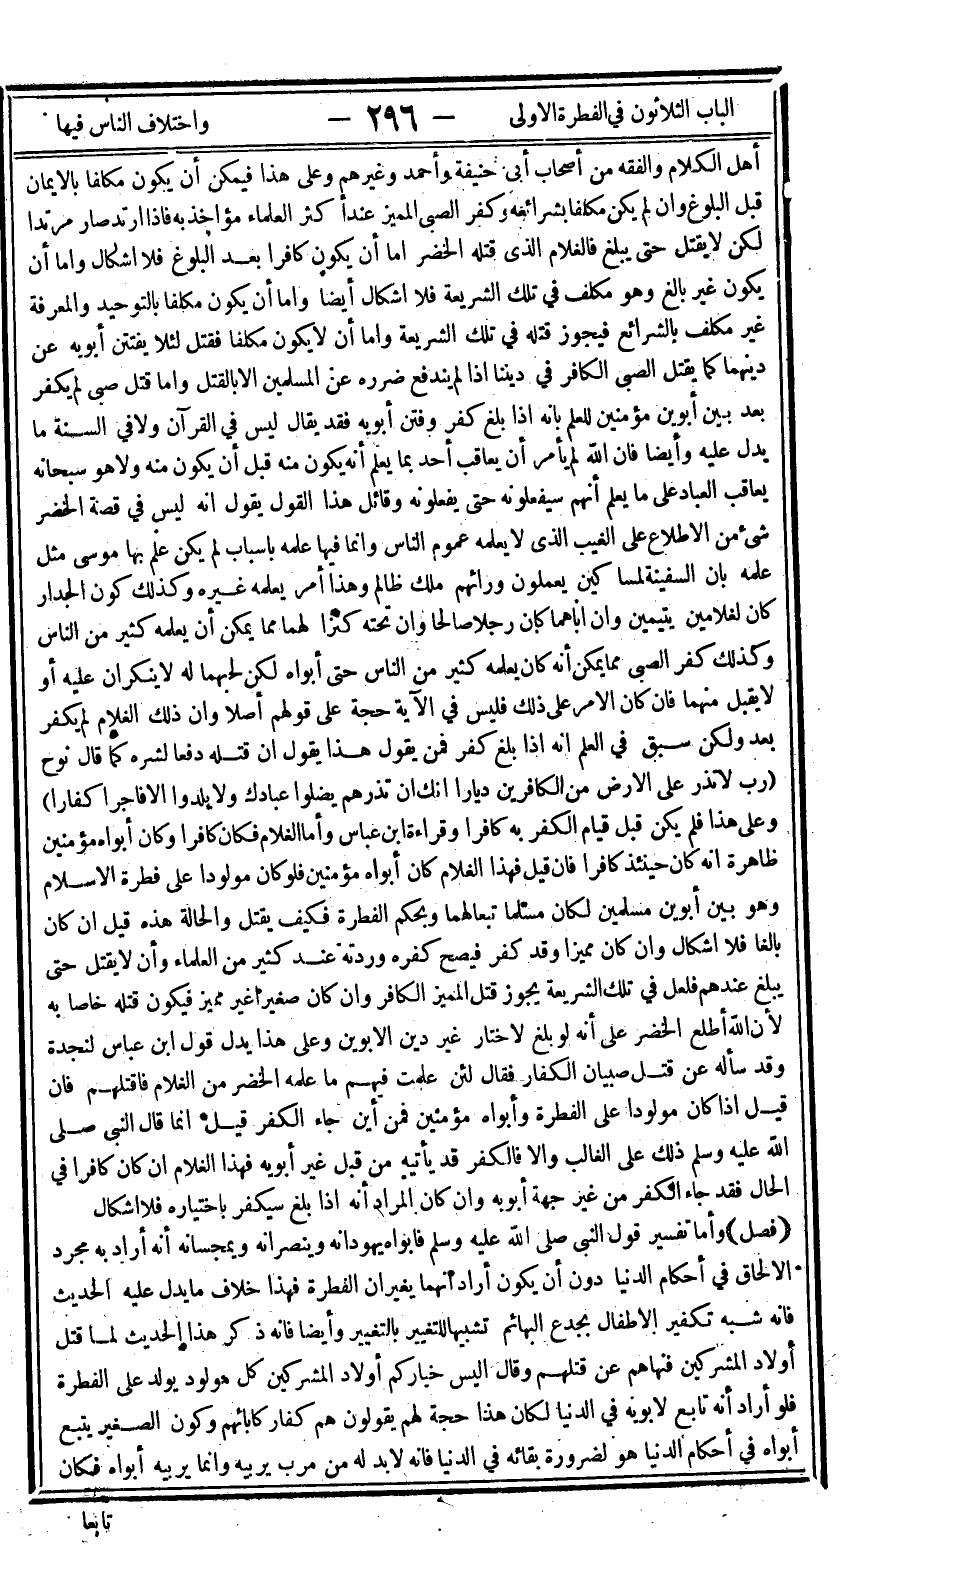 الباب الثلاثون في الفطرة الاولى — ٢٩٦ — واختلاف الناس فيها
أهل الكلام والفقه من أصحاب أبى حنيفة وأحمد وغيرهم وعلى هذا فيمكن أن يكون مكلفا بالايمان
قبل البلوغ وان لم يكن مكلفا بشرائعه وكفر الصبى المميز عند أكثر العلماء مؤاخذ به فاذا ارتد صار مرتدا
لكن لا يقتل حتى يبلغ فالغلام الذى قتله الخضر اما أن يكون كافرا بعد البلوغ فلا اشكال واما أن
يكون غير بالغ وهو مكلف في تلك الشريعة فلا اشكال أيضا واما أن يكون مكلفا بالتوحيد والمعرفة
غير مكلف بالشرائع فيجوز قتله في تلك الشريعة واما أن لا يكون مكلفا فقتل لئلا يفتتن أبويه عن
دينهما كما يقتل الصبى الكافر في ديننا اذا لم يندفع ضرره عن المسلمين الا بالقتل واما قتل صبى لم يكفر
بعد بين أبوين مؤمنين للعلم بانه اذا بلغ كفر وفتن أبويه فقد يقال ليس في القرآن ولا في السنة ما
يدل عليه وأيضا فان الله لم يأمر أن يعاقب أحد بما يعلم أنه يكون منه قبل أن يكون منه ولا هو سبحانه
يعاقب العباد على ما يعلم أنهم سيفعلونه حتى يفعلونه وقائل هذا القول يقول انه ليس في قصة الخضر
شئ من الاطلاع على الغيب الذى لا يعلمه عموم الناس وانما فيها علمه باسباب لم يكن علم بها موسى مثل
علمه بان السفينة لمساكين يعملون ورائهم ملك ظالم وهذا أمر يعلمه غيره وكذلك كون الجدار
كان لغلامين يتيمين وان اباهما كان رجلا صالحا وان تحته كنزا لهما مما يمكن أن يعلمه كثير من الناس
وكذلك كفر الصبى مما يمكن أنه كان يعلمه كثير من الناس حتى أبواه لكن لحبهما له لا ينكران عليه أو
لا يقبل منهما فان كان الامر على ذلك فليس في الآية حجة على قولهم أصلا وان ذلك الغلام لم يكفر
بعد ولكن سبق في العلم انه اذا بلغ كفر فمن يقول هذا يقول ان قتله دفعا لشره كما قال نوح
(رب لا تذر على الارض من الكافرين ديارا انك ان تذرهم يضلوا عبادك ولا يلدوا الا فاجرا كفارا)
وعلى هذا فلم يكن قبل قيام الكفر به كافرا وقراءة ابن عباس وأما الغلام فكان كافرا وكان أبواه مؤمنين
ظاهرة انه كان حينئذ كافرا فان قيل فهذا الغلام كان أبواه مؤمنين فلو كان مولودا على فطرة الاسلام
وهو بين أبوين مسلمين لكان مسلما تبعا لهما وبحكم الفطرة فكيف يقتل والحالة هذه قيل ان كان
بالغا فلا اشكال وان كان مميزا وقد كفر فيصح كفره وردته عند كثير من العلماء وأن لا يقتل حتى
يبلغ عندهم فلعل في تلك الشريعة يجوز قتل المميز الكافر وان كان صغيرا غير مميز فيكون قتله خاصا به
لأن الله أطلع الخضر على أنه لو بلغ لاختار غير دين الابوين وعلى هذا يدل قول ابن عباس لنجدة
وقد سأله عن قتل صبيان الكفار فقال لئن علمت فيهم ما علمه الخضر من الغلام فاقتلهم فان
قيل اذا كان مولودا على الفطرة وأبواه مؤمنين فمن أين جاء الكفر قيل انما قال النبى صلى
الله عليه وسلم ذلك على الغالب والا فالكفر قد يأتيه من قبل غير أبويه فهذا الغلام ان كان كافرا في
الحال فقد جاء الكفر من غير جهة أبويه وان كان المراد أنه اذا بلغ سيكفر باختياره فلا اشكال
(فصل) وأما تفسير قول النبى صلى الله عليه وسلم فابواه يهودانه وينصرانه ويمجسانه أنه أراد به مجرد
الالحاق في أحكام الدنيا دون أن يكون أراد أنهما يغيران الفطرة فهذا خلاف ما يدل عليه الحديث
فانه شبه تكفير الاطفال بجدع البهائم تشبيها للتغيير بالتغيير وأيضا فانه ذكر هذا الحديث لما قتل
أولاد المشركين فنهاهم عن قتلهم وقال اليس خياركم أولاد المشركين كل مولود يولد على الفطرة
فلو أراد أنه تابع لابويه في الدنيا لكان هذا حجة لهم يقولون هم كفار كابائهم وكون الصغير يتبع
أبواه في أحكام الدنيا هو لضرورة بقائه في الدنيا فانه لابد له من مرب يربيه وانما يربيه أبواه فكان
تابعا